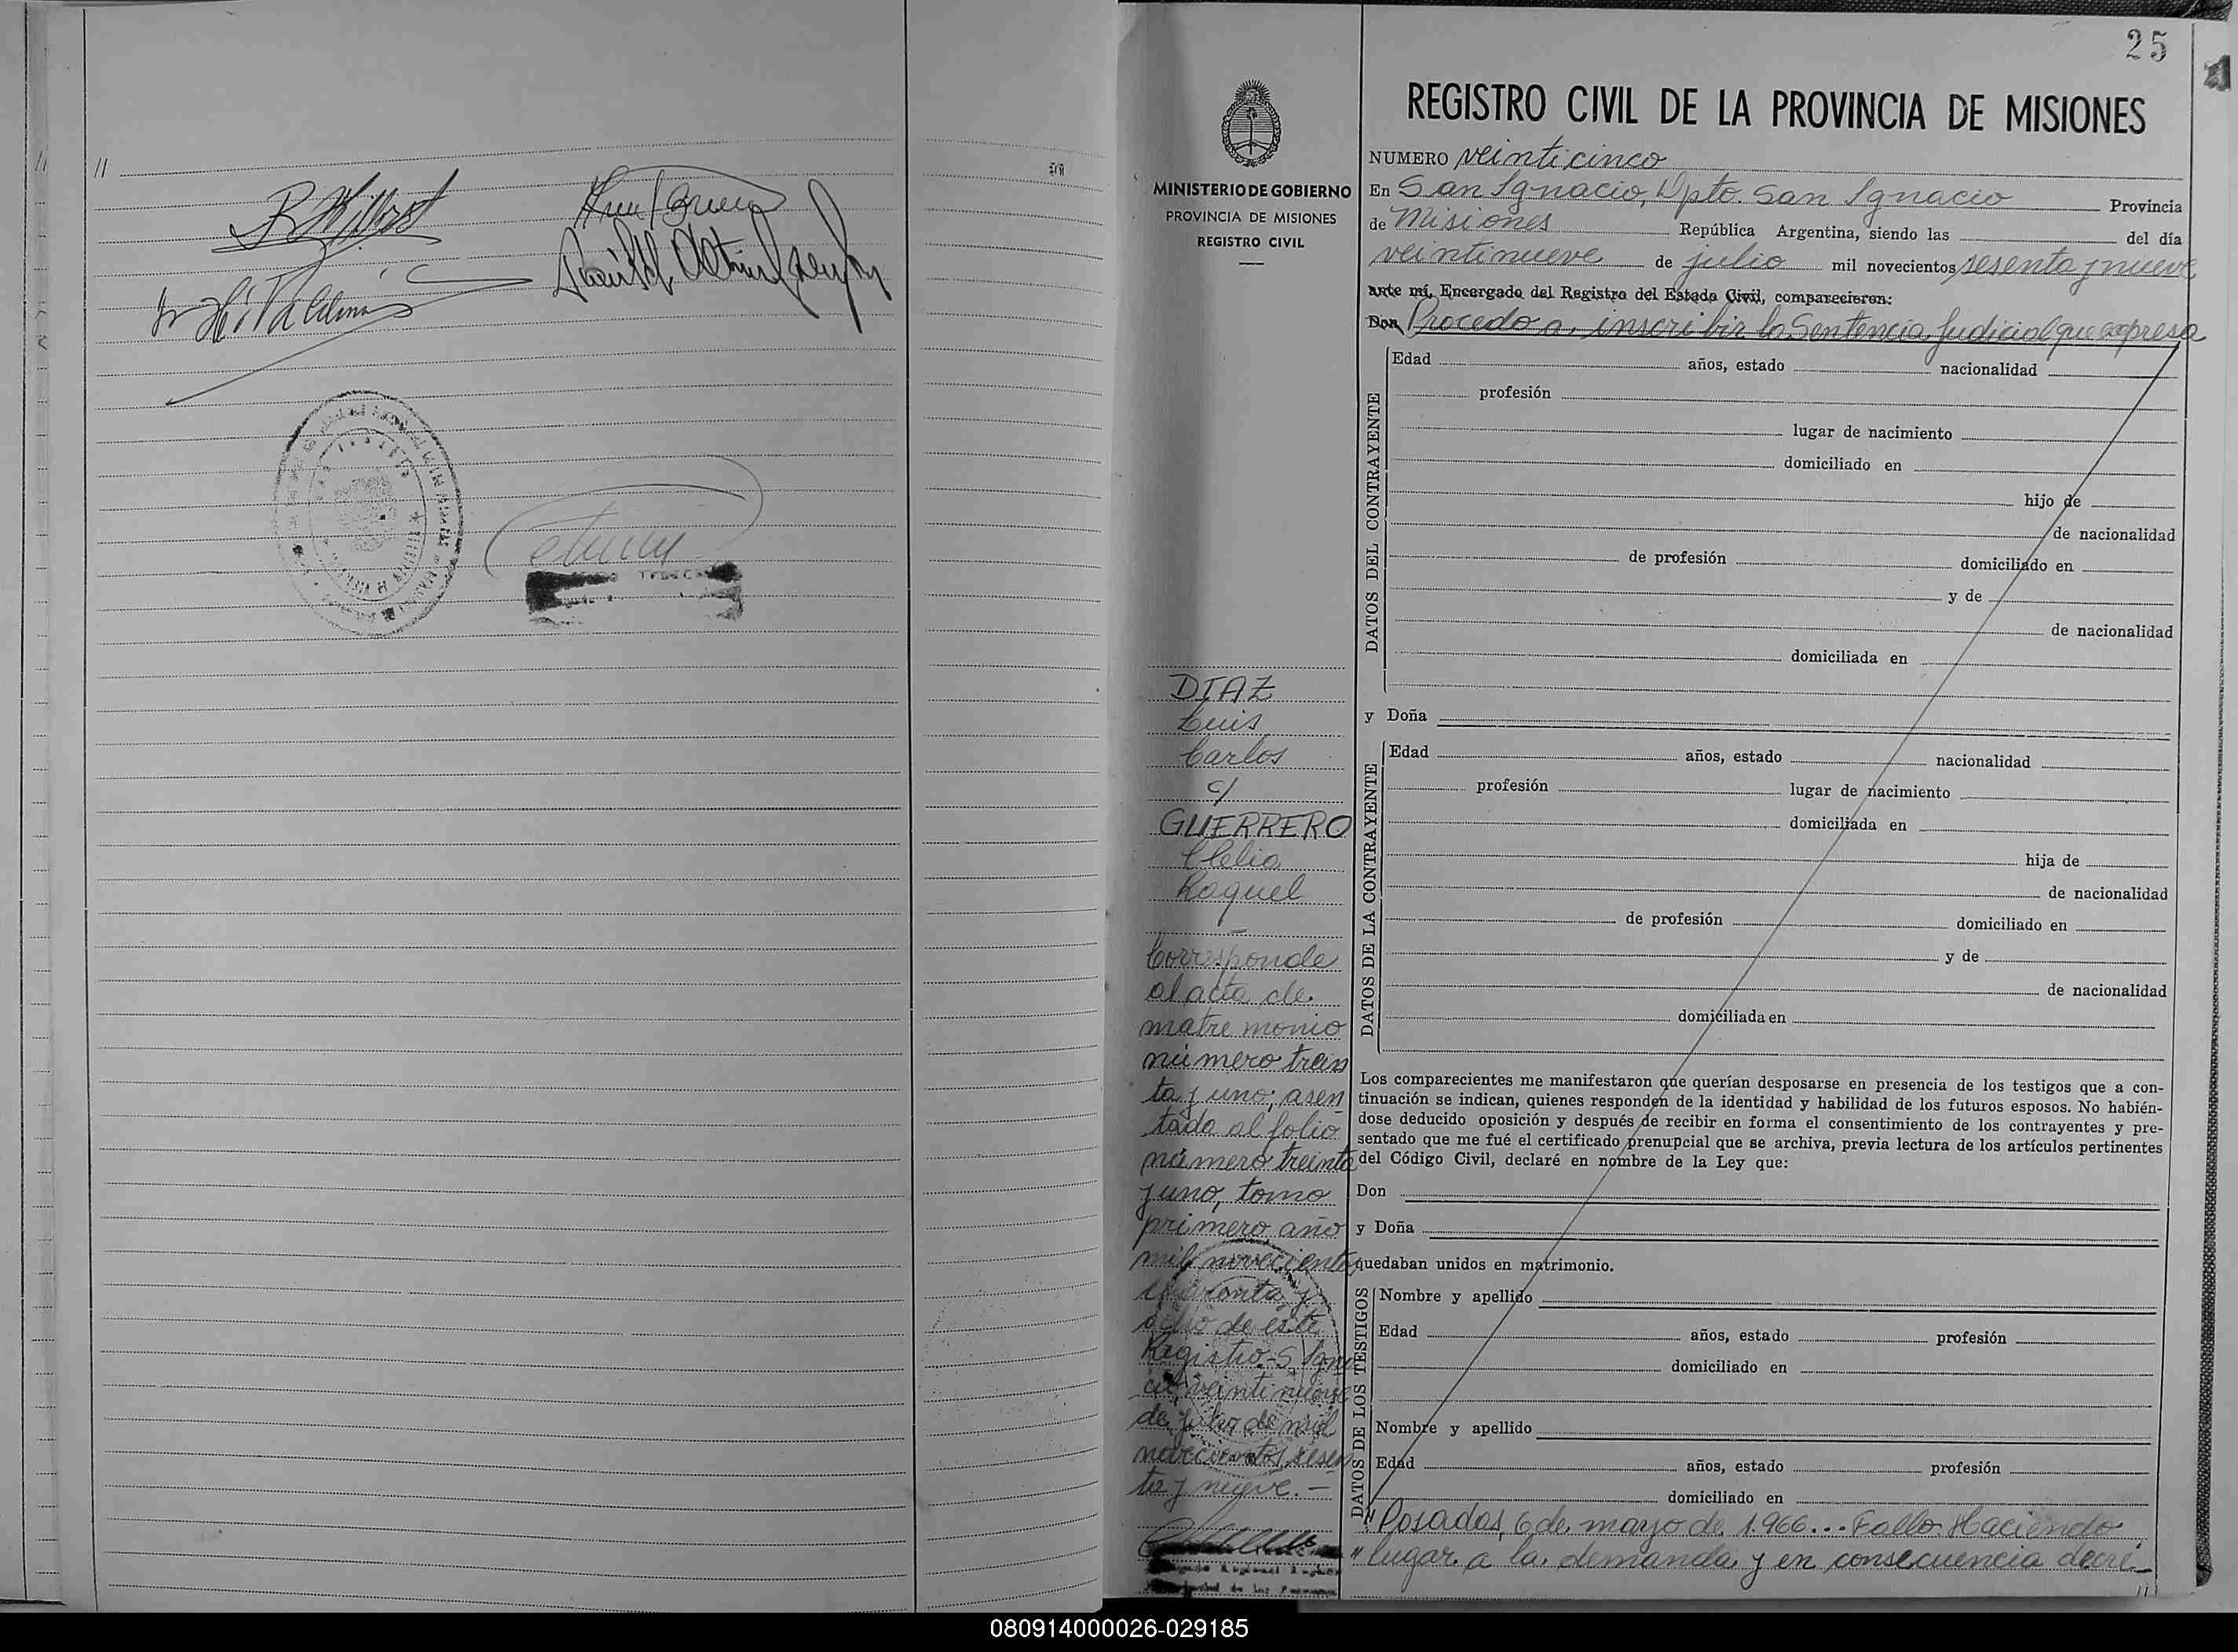 //
25
REGISTRO CIVIL DE LA PROVINCIA DE MISIONES
MINISTERIO DE GOBIERNO
PROVINCIA DE MISIONES
REGISTRO CIVIL
NUMERO veinticinco
En San Ignacio, Dpto. San Ignacio Provincia
de Misiones República Argentina, siendo las del día
veintinueve de julio mil novecientos sesenta y nueve
ante mí, Encargado del Registro del Estado Civil, comparecieron:
Don Procedo a inscribir la Sentencia Judicial que expresa
DATOS DEL CONTRAYENTE
Edad años, estado nacionalidad
profesión
lugar de nacimiento
domiciliado en
hijo de
de nacionalidad
de profesión domiciliado en
y de
de nacionalidad
domiciliada en
y Doña
DATOS DE LA CONTRAYENTE
Edad años, estado nacionalidad
profesión lugar de nacimiento
domiciliada en
hija de
de nacionalidad
de profesión domiciliado en
y de
de nacionalidad
domiciliada en
Los comparecientes me manifestaron que querían desposarse en presencia de los testigos que a con-
tinuación se indican, quienes responden de la identidad y habilidad de los futuros esposos. No habién-
dose deducido oposición y después de recibir en forma el consentimiento de los contrayentes y pre-
sentado que me fué el certificado prenupcial que se archiva, previa lectura de los artículos pertinentes
del Código Civil, declaré en nombre de la Ley que:
Don
y Doña
quedaban unidos en matrimonio.
DATOS DE LOS TESTIGOS
Nombre y apellido
Edad años, estado profesión
domiciliado en
Nombre y apellido
Edad años, estado profesión
domiciliado en
"Posadas, 6 de mayo de 1.966... Fallo: Haciendo
"lugar a la demanda y en consecuencia decre-
//
DIAZ
Luis
Carlos
c/
GUERRERO
Clelia
Raquel
-
Corresponde
al acta de
matremonio
número trein
ta y uno, asen
tado al folio
número treinta
y uno, tomo
primero año
mil novecientos
cuarenta y
ocho de este
Registro.-S. Igna
cio, veintinueve
de julio de mil
novecientos sesen
ta y nueve.-
080914000026-029185